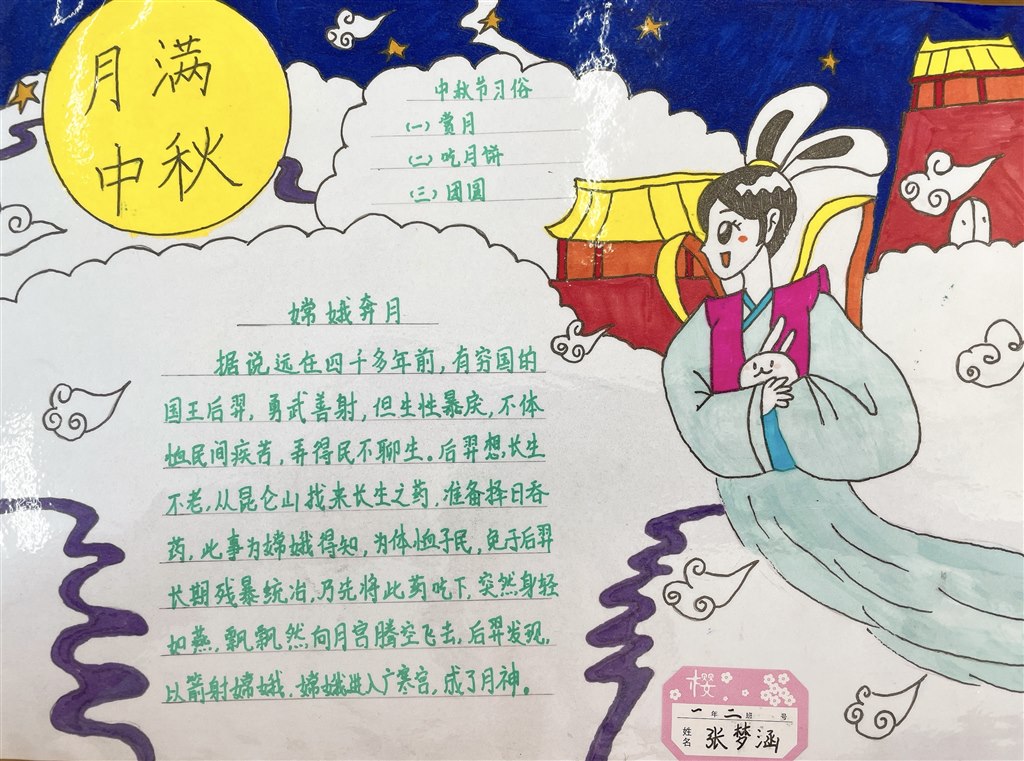 月满
中秋
中秋节习俗
(一) 赏月
(二) 吃月饼
(三) 团圆
嫦娥奔月
据说远在四千多年前,有穷国的
国王后羿,勇武善射,但生性暴戾,不体
恤民间疾苦,弄得民不聊生。后羿想长生
不老,从昆仑山找来长生之药,准备择日吞
药,此事为嫦娥得知,为体恤子民,免于后羿
长期残暴统治,乃先将此药吃下,突然身轻
如燕,飘飘然向月宫腾空飞去,后羿发现,
以箭射嫦娥,嫦娥进入广寒宫,成了月神。
樱
一年二班 号
姓名 张梦涵